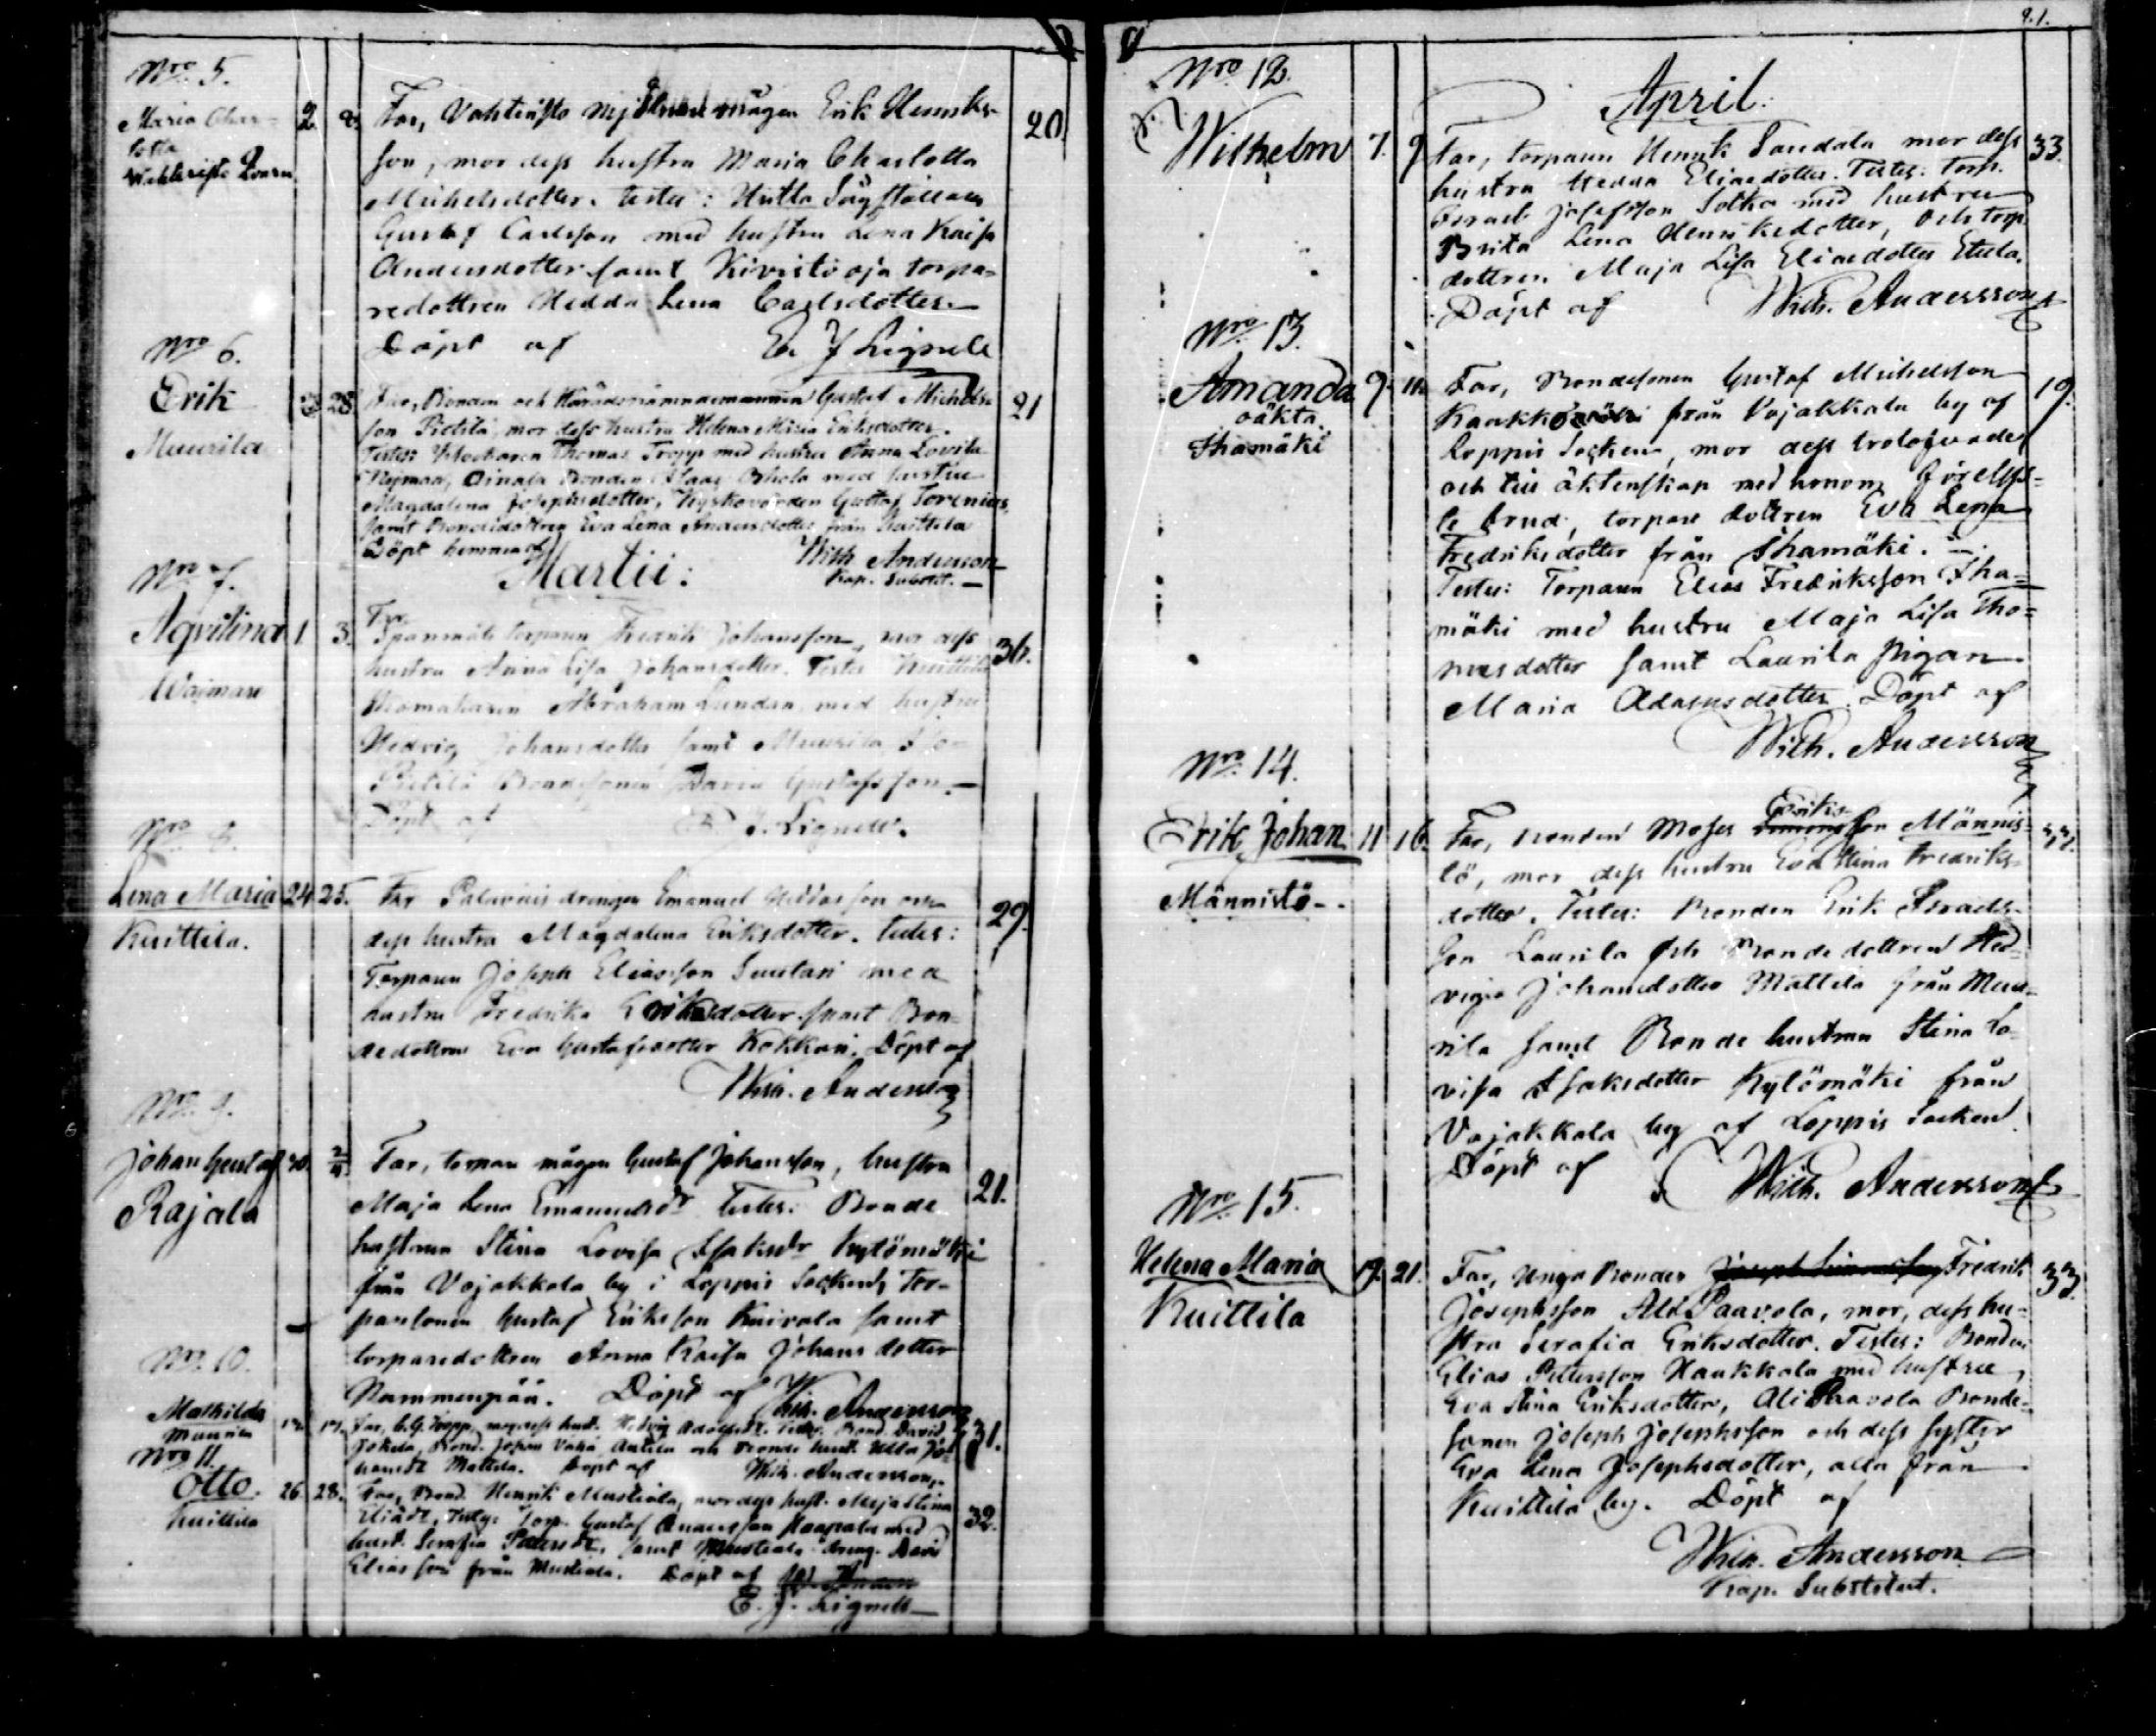 Nro 5.
Maria Char=
lotta
2. 9.
Far, Vahteristo mågen Erik Henriks-
son, mor dess hustru Maria Charlotta
Michelsdotter. testes:
Gustaf Carlsson med hustru Lena Kaisa
Andersdotter samt Kivistöoja torpa=
redottren Hedda Lena Carlsdotter.
Döpt af E. J. Lignell
20.
Nro 6.
Erik
Muurila
28.
Far, Bonden och Häradsnämndemannen Gustaf Michels-
son Pietilä, mor dess hustru Helena Maria Eriksdotter.
Testes: Klockaren Thomas Tropp med hustru Anna Lovisa
Nyman, Bonden Isaac med hustru
Magdalena Josephsdotter, Gustaf Forenius,
samt Bondedottren Eva Lena Andersdotter från Kuittila
Döpt hemma af Wilh Andersson
Kap. Substit.
21
Martii:
Nro 7.
Aqvilina
1. 3.
Far
torparen Fredrik Johansson, mor dess
hustru Anna Lisa Johansdotter. Testes Kuittila
Abraham Lundén med hustru
Hedvig Johansdotter samt Muurila
Pietilä Bondesonen David Gustafsson.
Döpt af E. J. Lignell.
36.
Nro 8.
Lena Maria
Kuittila.
24. 25.
Far drengen Emanuel
dess hustru Magdalena Eriksdotter. Testes:
Torparen Joseph Eliasson Suutari med
hustru Fredrika Eriksdotter samt Bon=
dedottren Eva Gustafsdotter Kokkoi. Döpt af
Wilh. Andersson
29.
Nro 9.
Johan Gustaf
Rajala
30. 2/4
Far, torpare mågen Gustaf Johansson, hustru
Maja Lena Emanuelsdr Testes: Bonde
hustrun Stina Lovisa Isaksdr Kylömäki
från Vojakkala by i Loppis Socken, Tor-
paresonen Gustaf Eriksson Knivola samt
torparedottren Anna Kaisa Johansdotter
Nummenpää. Döpt af Wilh. Andersson
21.
Nro 10.
Mathilda
17.
Far, C. G. Tropp, mor dess hust. Hedvig Testes: Bond. David
Jokela, Bond. Johan Anttila och Bonde hust. Ulla Jo=
hansdr Mattila. Döpt af Wilh. Andersson.
31.
Nro 11.
Otto.
Kuittila
26. 28.
Far, Bond. Henrik Mustiala, mor dess hust. Maja Stina
Eliædr, Testes: Torp. Gustaf Andersson Haapala med
hust. Serafia samt Mustiala dreng. David
Eliasson från Mustiala. Döpt af
E. J. Lignell
32.
9.1.
April.
Nro 12.
Wilhelm
7. 9
Far, torparen Henrik Tandala mor dess
hustru Hedda Eliædotter. Testes: Torp.
Israel Josefsson Sotka med hustru
Brita Lena Henriksdotter, och torp.
dottren Maja Lisa Eliædotter Etula.
Döpt af Wilh. Andersson
33.
Nro 13.
Amanda
oäkta.
Ihamäki
9. 11.
Far, Bondesonen Gustaf Michelsson
från Vojakkala by af
Loppis Socken, mor dess trolofvade
och till äktenskap med honom
brud, torpare dottren Eva Lena
Fredriksdotter från Ihamäki.
Testes: Torparen Elias Fredriksson Iha=
mäki med hustru Maja Lisa Tho=
masdotter samt Laurila Pigan
Maria Adamsdotter. Döpt af
Wilh. Andersson
19.
Nro 14.
Erik Johan
Männistö.
11 16.
Far, Bonden Moses Eriksson Männis=
tö, mor dess hustru Eva Stina Fredriks=
dotter. Testes: Bonden Erik Israels=
son Laurila och Bondedottren Hed=
vigia Johansdotter Mattila från Muu=
rila samt Bonde hustrun Stina Lo=
visa Isaksdotter Kylömäki från
Vojakkala by af Loppis Socken.
Döpt af Wilh. Andersson
Nro 15.
Helena Maria
Kuittila
19. 21.
Far, Unga Bonden Fredrik
Josephsson Ali Paavola, mor, dess hu=
stru Serafia Eriksdotter. Testes: Bonden
Elias Pettersson Haukkala med hustru
Eva Stina Eriksdotter, Ali Paavola Bonde=
sonen Joseph Josephsson och dess syster
Eva Lena Josephsdotter, alla från
Kuittila by. Döpt af
Wilh. Andersson
Kap. Substitut.
33.